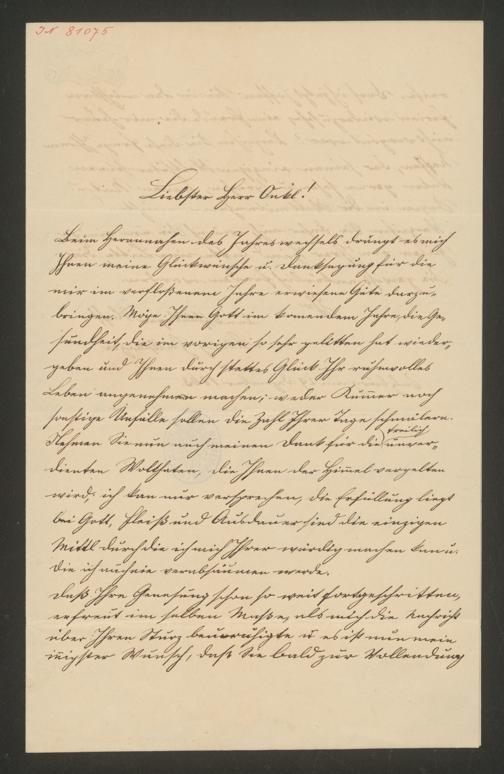 IN 81075
Liebster Herr Onkl!
Beim Herannahen des Jahreswechsels drängt es mich
Ihnen meine Glückwünsche u. Danksagung für die
mir im verfloßenem Jahre erwiesene Güte darzu-
bringen. Möge Ihnen Gott im komendem Jahre, die Ge-
sundheit, die im vorigen so sehr gelitten hat wieder-
geben und Ihnen durch stettes Glück Ihr ruhmvolles
Leben angenehmen machen; weder Kumer noch
sonstige Unfälle sollen die Zahl Ihrer Tage schmälern.
Nehmen Sie nun auch meinen Dank für die freilich unver-
dienten Wolthaten, die Ihnen der Himel vergelten
wird; ich kan nur versprechen, die Erfüllung liegt
bei Gott. Fleiß und Ausdauer sind die einzigen
Mittl durch die ich mich Ihrer würdig machen kan u.
die ich auch nie verabsäumen werde.
Daß Ihre Genesung schon so weit fortgeschritten,
erfreut im selben Maße, als mich die Nachricht
über Ihren Sturz beunruhigte u es ist nun mein
inigster Wunsch, daß Sie bald zur Vollendung